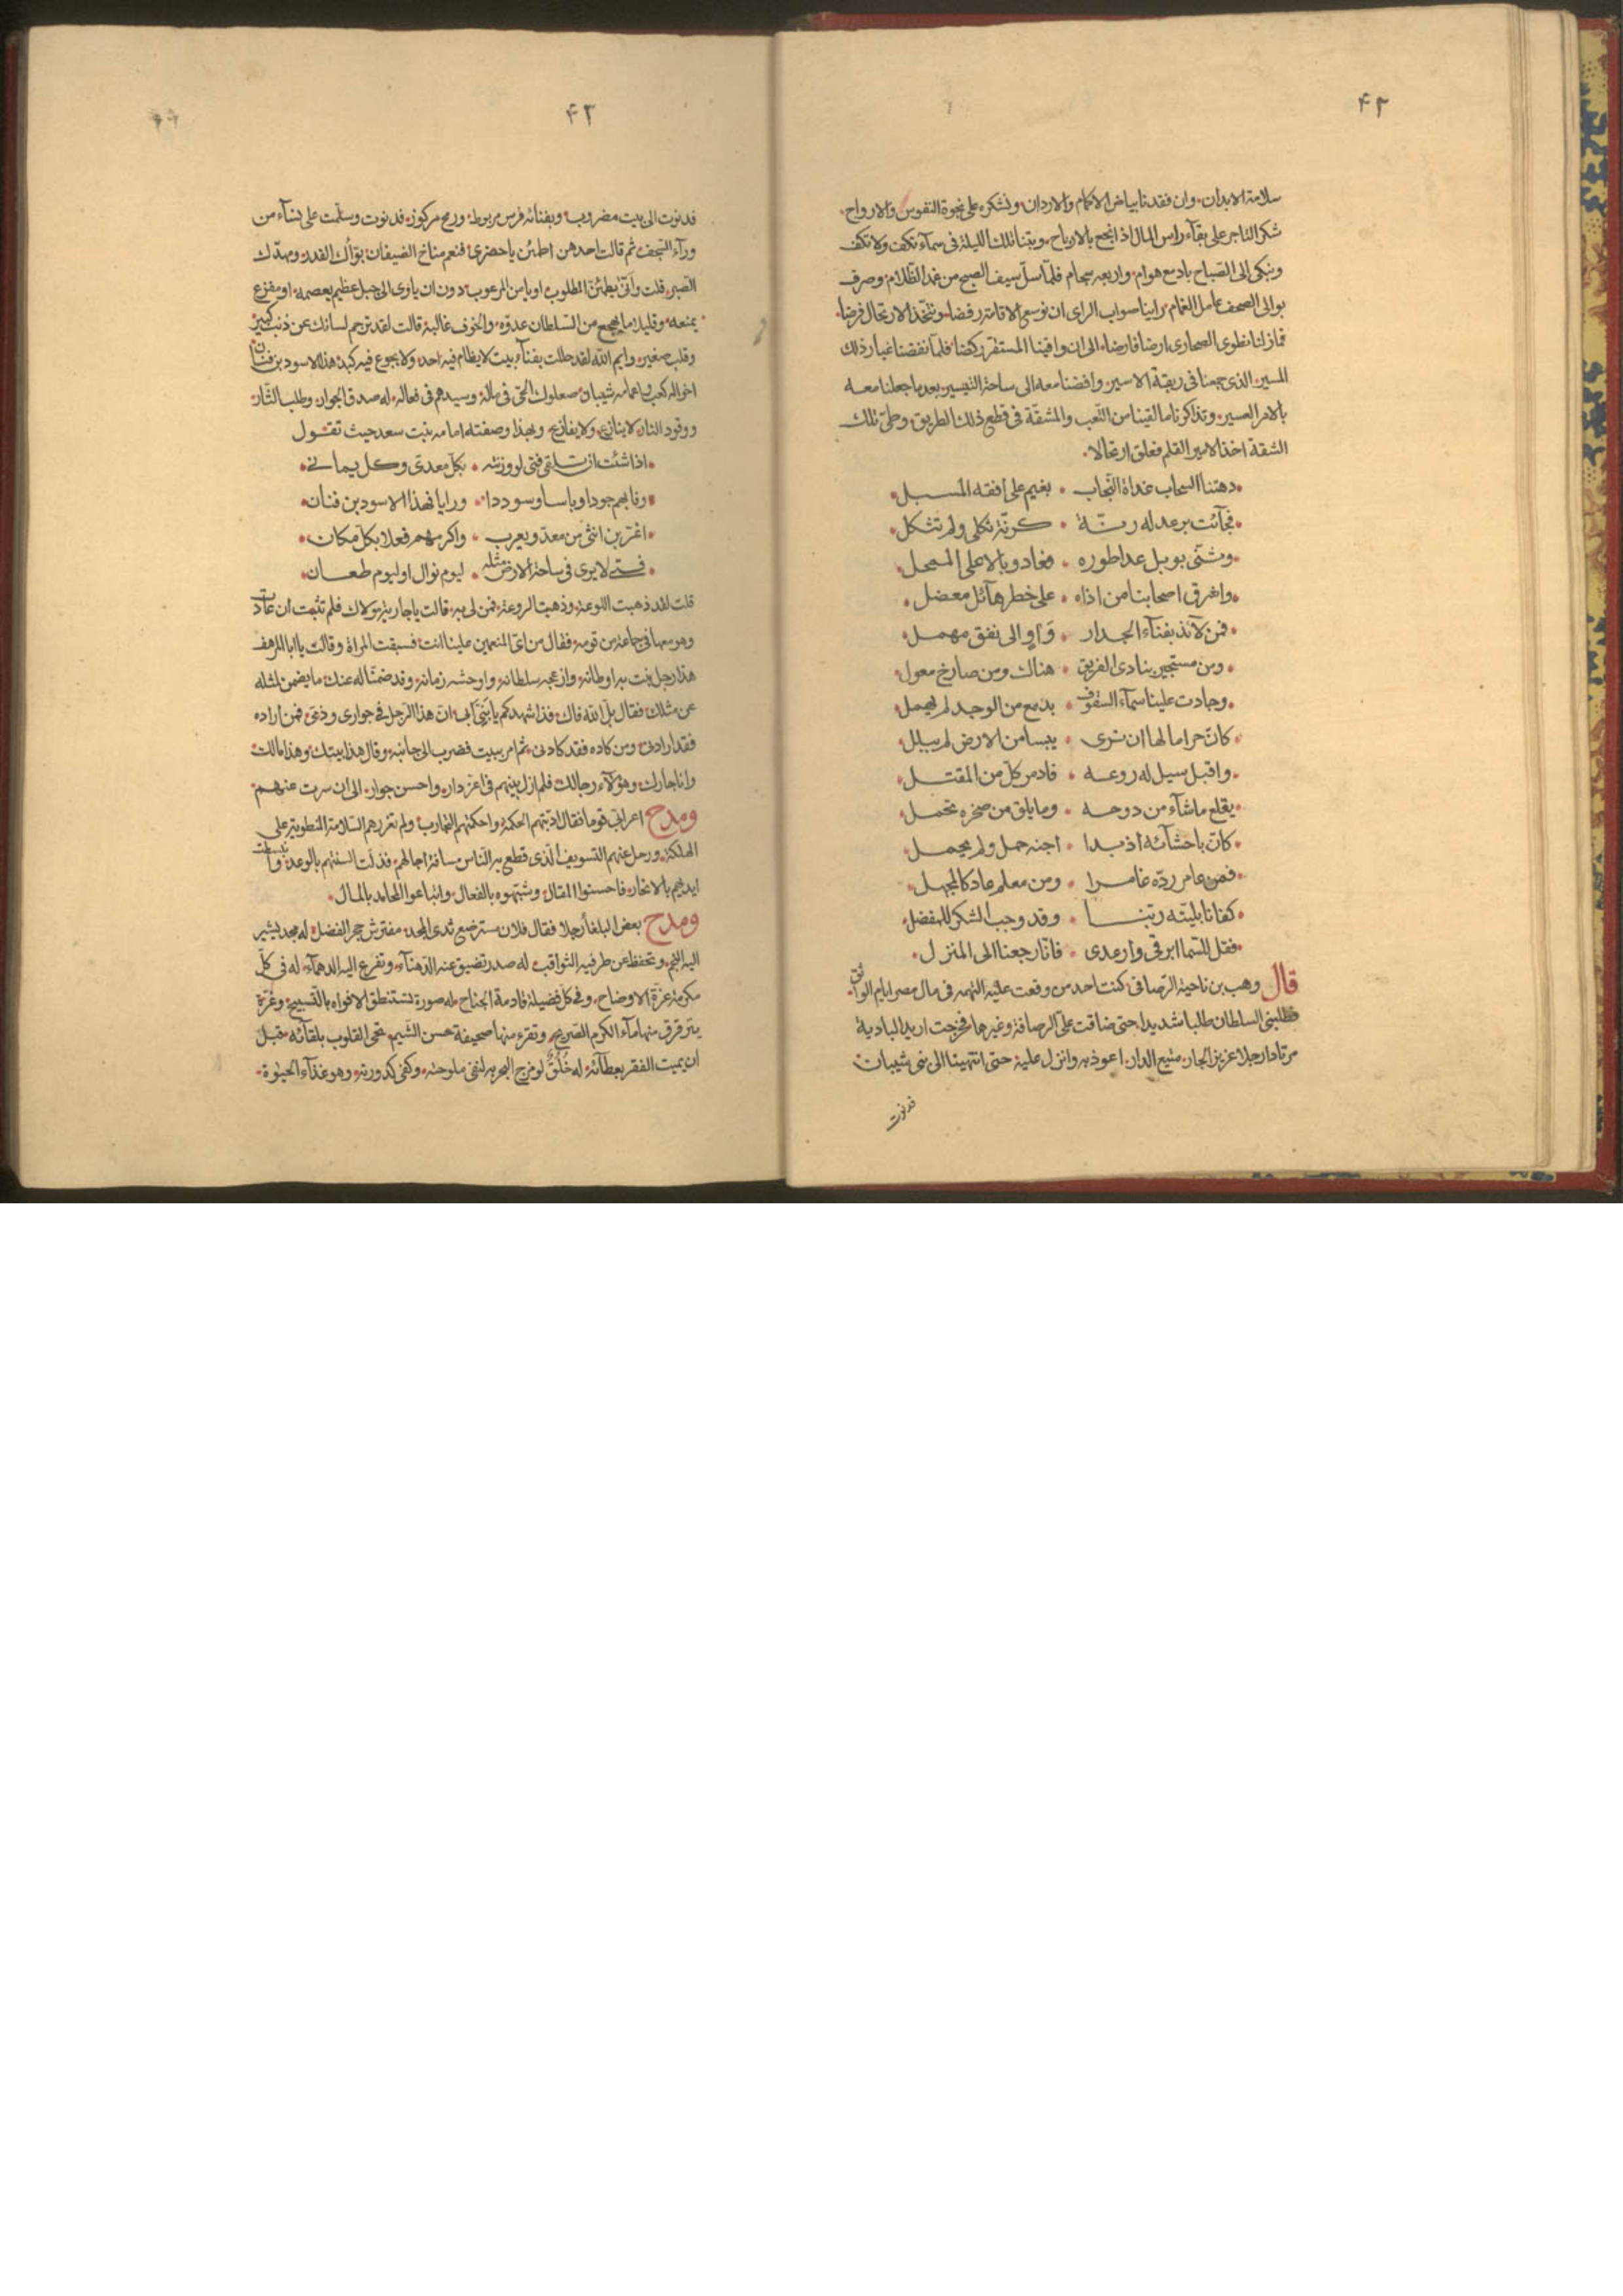 ٤٢
سلامة الابدان وان فقدنا بياض الاكمام والاردان ونشكره على نجوة النفوس والارواح
شكر التاجر على بقآء راس المال اذا نجح بالارباح وبتنا تلك الليلة فى سمآء تكف ولا تكف
ونبكى الى الصباح بادمع هوام واربعه سجام فلما سل سيف الصبح من غمد الظلام وصرف
بوالى الصحف عامل الغمام راينا صواب الراى ان نوسع الاقامة رفضا ونتخذ الارتحال فرضا
فمازلنا نطوى الصحارى ارضا فارضا الى ان وافينا المستقر ركضا فلما نفضنا غبار ذلك
المسير الذى جمعنا فى ربقة الاسير وافضنا معه الى ساحة التيسير بعد ما جعلنا معه
بالامر العسير وتذاكرنا ما لقينا من التعب والمشقة فى قطع ذلك الطريق وطى تلك
الشقة اخذ الامير القلم فعلق ارتجالا
دهتنا السحاب غداة النجاب بغيم على افقه المسبل
فجآئت برعد له رنة كرنة ثكلى ولم تثكل
وثنى بوبل عدا طوره فعاد وبالا على الممحل
واشرق اصحابنا من اذاه على خطر هآئل معضل
فمن لآئذ بفنآء الجدار وآو الى نفق مهمل
ومن مستجير ينادى الغريق هناك ومن صارخ معول
وجادت علينا سمآء السقوف بدمع من الوجد لم يهمل
كان حراما لها ان ترى يبسا من الارض لم يبلل
واقبل سيل له روعة فادبر كل من المقبل
يقلع ما شآء من دوحه وما يلق من صخره تحمل
كان باحشآئه اذ بدا اجنة حمل ولم يحمل
فمن عامر رده غامرا ومن معلم عاد كالمجهل
كفانا بليته ربنا وقد وجب الشكر للمفضل
فقل للسما ابرقى وارعدى فانا رجعنا الى المنزل
قال وهب بن ناحية الرصافى كنت احد من وقعت عليه التهمه فى مال مصر ايام الواثق
فطلبنى السلطان طلبا شديدا حتى ضاقت على الرصافة وغيرها فخرجت اريد البادية
مرتادا رجلا عزيز الجار منيع الدار اعوذ به وانزل عليه حتى انتهينا الى بنى شيبان
فدنوت
٤٣
فدنوت الى بيت مضروب وبفنائه فرس مربوط ورمح مركوز فدنوت وسلمت على نسآء من
ورآء السجف ثم قالت احدهن اطمئن يا حضرى فنعم مناخ الضيفان بواك القدر ومهدك
الصبر قلت وانى يطمئن المطلوب او يامن المرعوب دون ان ياوى الى جبل عظيم يعصمه او مفزع
يمنعه وقليل ما يهجع من السلطان عدوه والخوف غالبه قالت لقد ترجم لسانك عن ذنب كبير
وقلب صغير وايم الله لقد حللت بفنآء بيت لا يظام فيه احد ولا يجوع فيه كبد هذا الاسود بن فنان
اخواله كعب واعمامه شيبان صعلوك الحى فى ماله وسيدهم فى فعاله له صدق الجوار وطلب الثار
ووقود النار لا ينازع ولا يفازع وبهذا وصفته امامه بنت سعد حيث تقول
اذا شئت ان تلقى فتى لو وزنته بكل معدى وكل يمانى
وفابهم جودا وباسا وسوددا ورايا فهذا الاسود بن فنان
اغر بن انثى من معد ويعرب واكرمهم فعلا بكل مكان
فتى لا يرى فى ساحة الارض مثله ليوم نوال او ليوم طعان
قلت لقد ذهبت اللوعة وذهبت الروعة فمن لى به قالت يا جارية مولاك فلم تثبت ان عادت
وهو معها فى جماعة من قومه فقال من اى المنعمين علينا انت فسبقت المراة وقالت يا ابا المرهف
هذا رجل نبت به اوطانه وازعجه سلطانه واوحشه زمانه وقد ضمنا له عنك ما يضمن لمثله
عن مثلك فقال بل الله فاك فذا شهدكم يا بنى اب ان هذا الرجل فى جوارى وذمتى فمن اراده
فقد ارادنى ومن كاده فقد كادنى ثم امر ببيت فضرب الى جانبه وقال هذا بيتك وهذا مالك
وانا جارك وهؤلآء رجالك فلم ازل بينهم فى اعز دار واحسن جوار الى ان سرت عنهم
ومدح اعرابى قوما فقال ادبتهم الحكمة واحكمتهم التجارب ولم تغررهم السلامة المنطوية على
الهلكة ورحل عنهم التسويف الذى قطع به الناس مسافة اجالهم فذلت السنتهم بالوعد وانبسطت
ايديهم بالانجاز فاحسنوا المقال وشتهوه بالفعال وابتاعوا المحامد بالمال
ومدح بعض البلغا رجلا فقال فلان مسترضع ثدى المجد مفترش حجر الفضل له مجد يشير
اليه النجم وتحفظ عن طرفيه الثواقب له صدر تضيق عنه الدهنآء وتفزع اليه الدهمآء له فى كل
مكرمة غرة الاوضاح وفى كل فضيلة قادمة الجناح له صورة تستنطق الافواه بالتسبيح وغرة
يترقرق منها مآء الكرم الصريح وتقرء منها صحيفة حسن الشيم تحى القلوب بلقآئه قبل
ان يميت الفقر بعطآئه له خلق لو مزج البحر به لنفى ملوحته وكفى كدورته وهو غذآء الحيوة